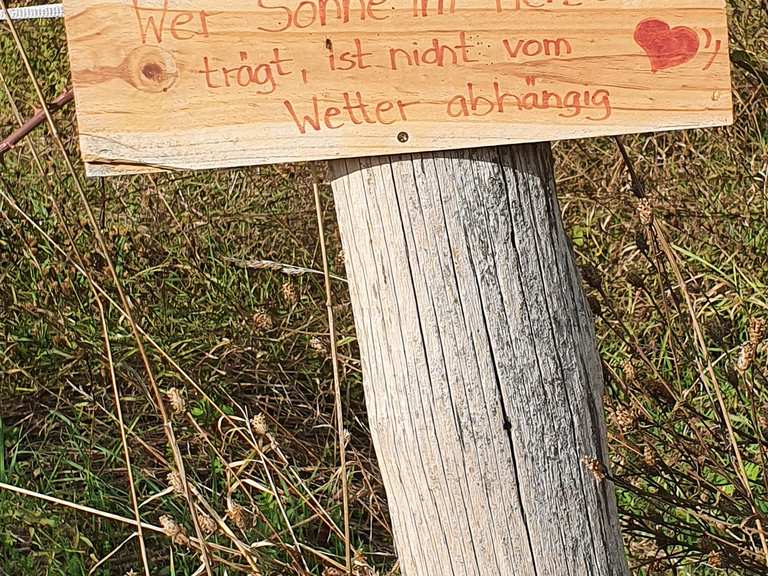 Wer Sonne im Herz
trägt, ist nicht vom
Wetter abhängig